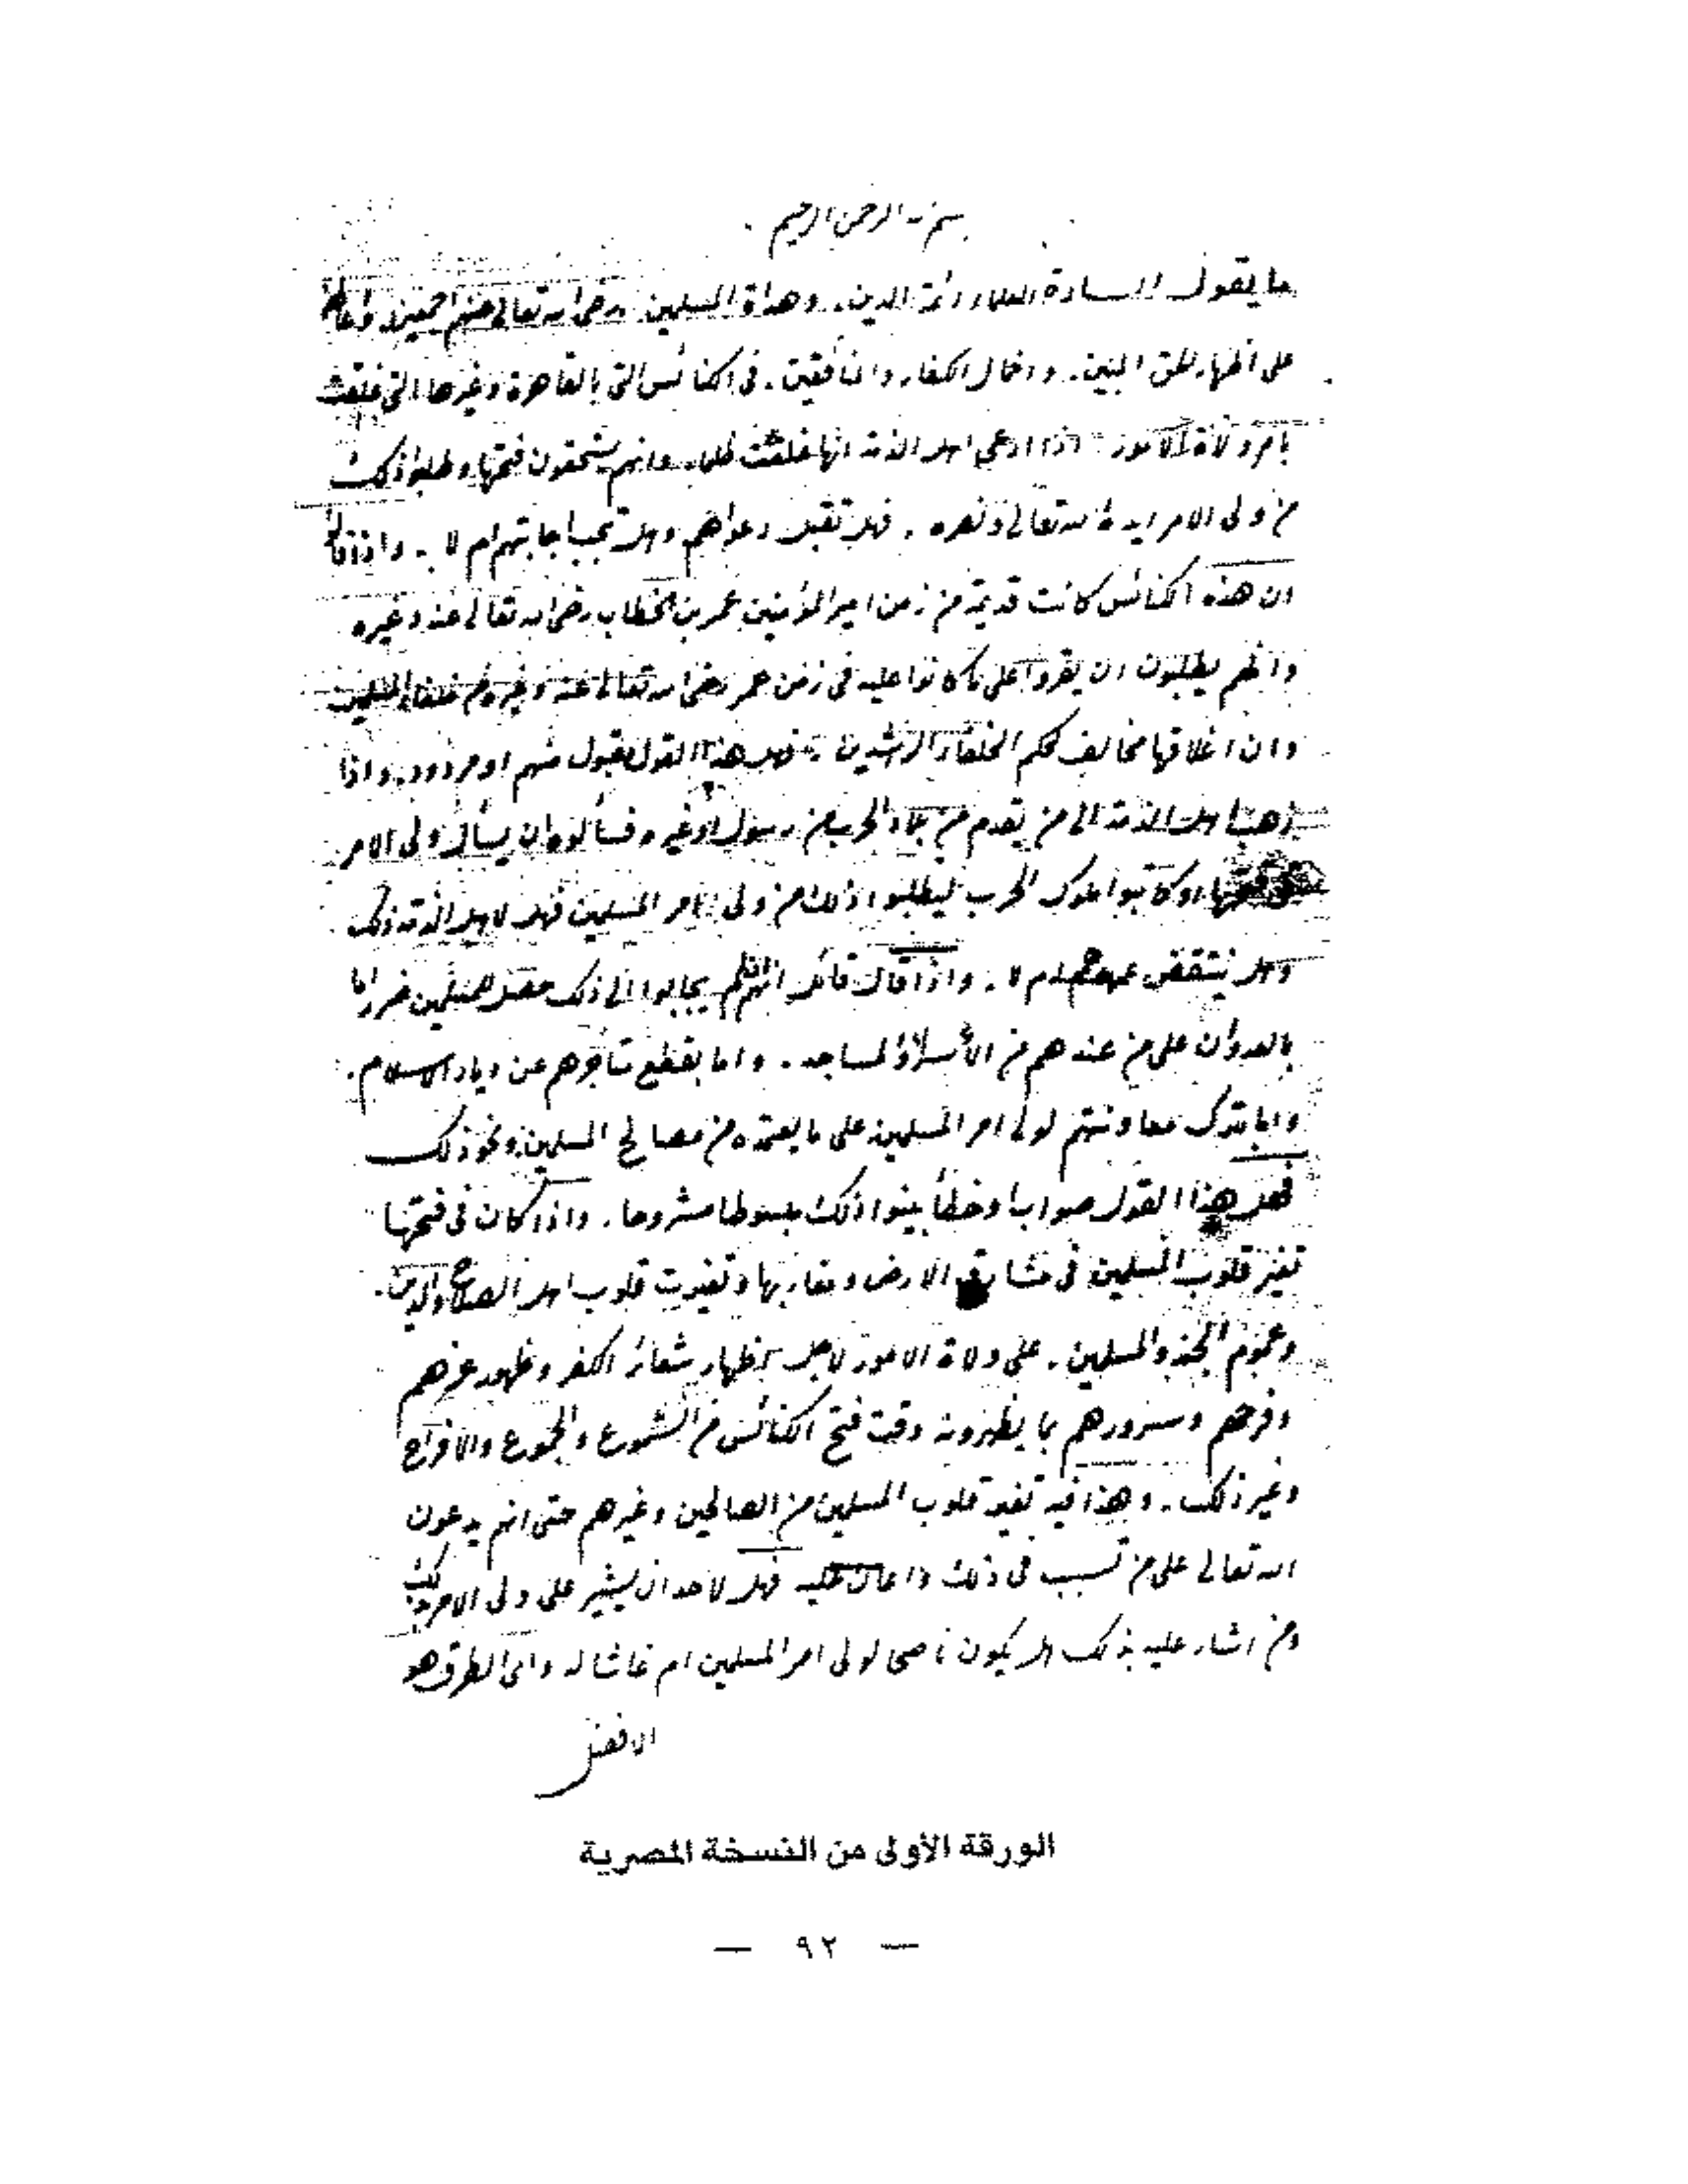 بسم الله الرحمن الرحيم
ما يقول السادة العلماء أئمة الدين. وهداة المسلمين رضي الله تعالى عنهم أجمعين وأعانهم
على اظهار الحق المبين. واخمال الكفار والمنافقين. في الكنائس التي بالقاهرة وغيرها التي غلقت
بامر ولاة الامور اذا ادعى اهل الذمة انها غلقت ظلما وانهم يستحقون فتحها وطلبوا ذلك
من ولى الامر ايده الله تعالى ونصره . فهل تقبل دعواهم وهل تجب اجابتهم ام لا . واذا قالوا
ان هذه الكنائس كانت قديمة من زمن امير المؤمنين عمر بن الخطاب رضى الله تعالى عنه وغيره
وانهم يطلبون ان يقروا على ما كانوا عليه فى زمن عمر رضى الله تعالى عنه وغيره من خلفاء المسلمين
وان اغلاقها مخالف لحكم الخلفاء الراشدين . فهل هذا القول مقبول منهم او مردود. واذا
ذهب اهل الذمة الى من يقدم من بلاد الحرب من رسول او غيره فسألوه ان يسأل ولى الامر
فى فتحها او كاتبوا ملوك الحرب ليطلبوا ذلك من ولى امر المسلمين فهل لاهل الذمة ذلك
وهل ينتقض عهدهم ام لا . واذا قال قائل انهم ان لم يجابوا الى ذلك حصل للمسلمين ضرر اما
بالعدوان على من عندهم من الأسراء والمساجد . واما بقطع متاجرهم عن ديار الاسلام.
واما بترك معاونتهم لولى امر المسلمين على ما يعتمده من مصالح المسلمين ونحو ذلك
فهل هذا القول صواب او خطأ بينوا ذلك مبسوطا مشروحا . واذا كان فى فتحها
تغير قلوب المسلمين فى مشارق الارض ومغاربها وتغيرت قلوب اهل الصلاح والدين.
وعموم الجند والمسلمين . على ولاة الامور لاجل اظهار شعائر الكفر وظهور عزهم
وفرحهم وسرورهم بما يظهرونه وقت فتح الكنائس من الشموع والجموع والافراح
وغير ذلك . وهذا فيه تغير قلوب المسلمين من الصالحين وغيرهم حتى انهم يدعون
الله تعالى على من تسبب فى ذلك واعان عليه فهل لاحد ان يشير على ولى الامر بذلك
ومن اشار عليه بذلك هل يكون ناصحا لولى امر المسلمين ام غاشا له واى الطرق هو
الافضل
الورقة الأولى من النسخة المصرية
— ٩٢ —